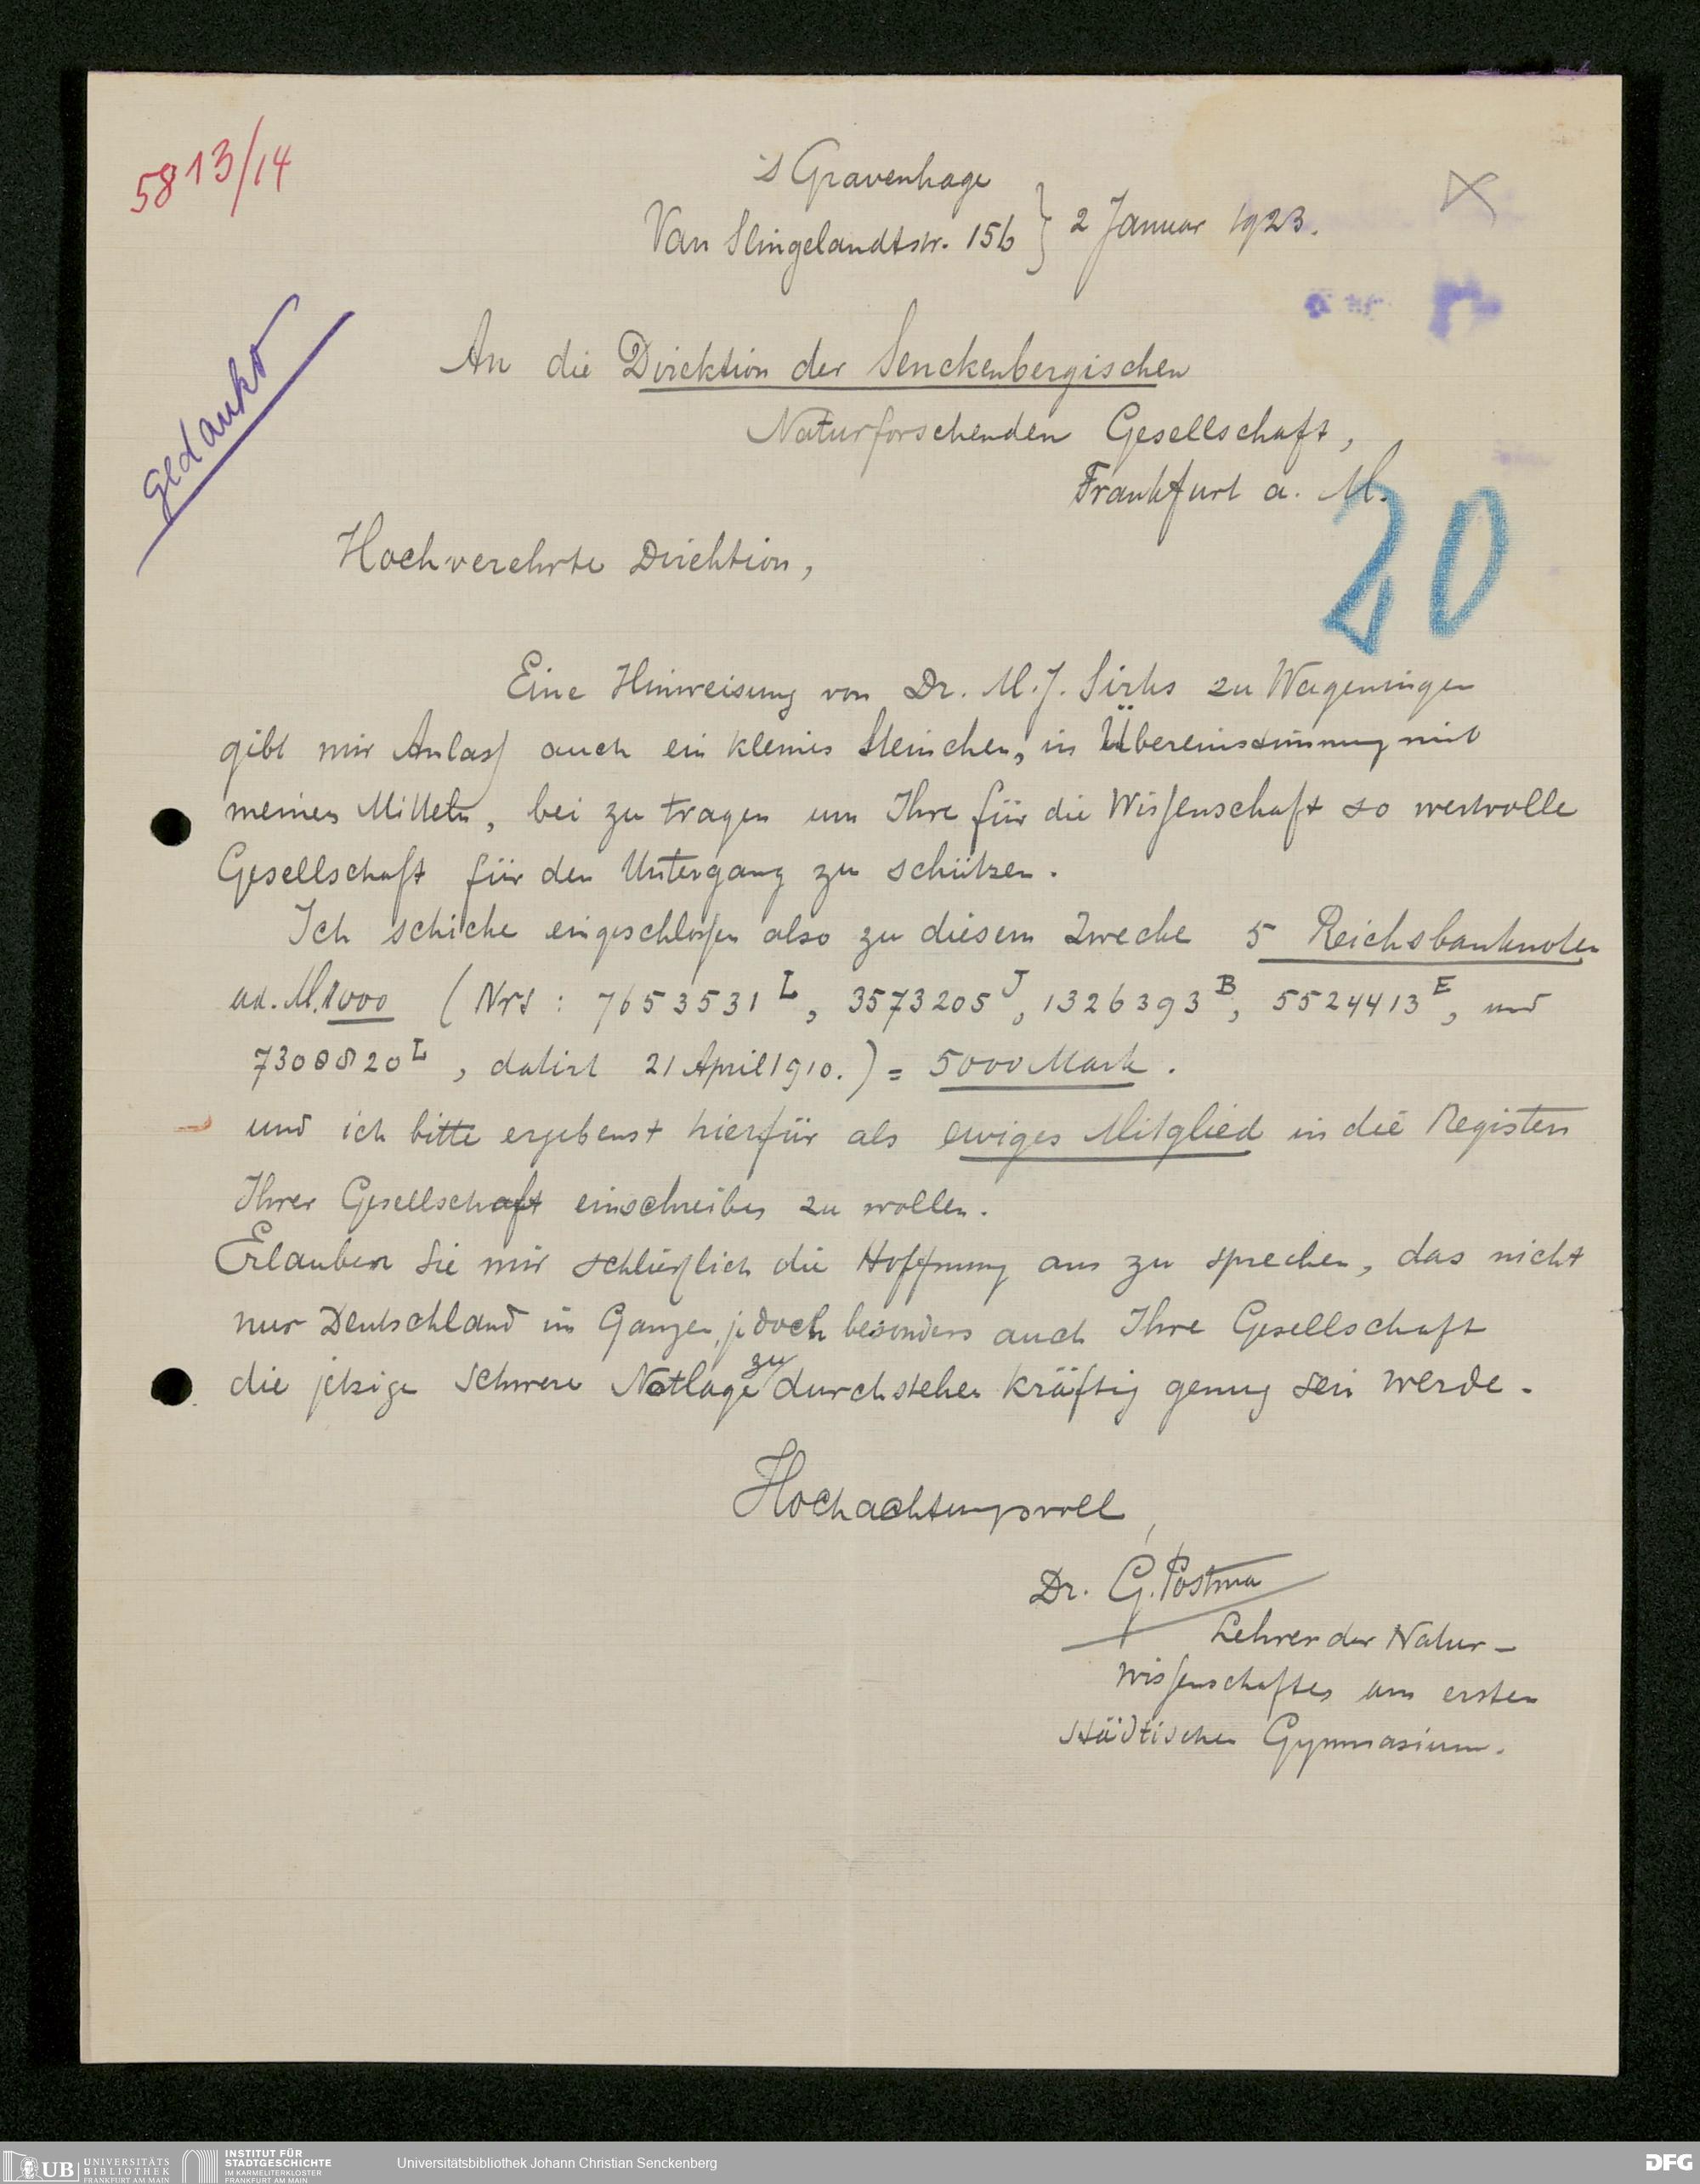 5813/14
's Gravenhage
Van Slingelandtstr. 156 } 2 Januar 1923.
gedankt
An die Direktion der Senckenbergischen
Naturforschenden Gesellschaft,
Frankfurt a. M.
20
Hochverehrte Direktion,
Eine Hinweisung von Dr. M. J. Sirks zu Wageningen
gibt mir Anlass auch ein kleines Steinchen, in Übereinstimmung mit
meinen Mitteln, bei zu tragen um Ihre für die Wissenschaft so wertvolle
Gesellschaft für den Untergang zu schützen.
Ich schicke eingeschlossen also zu diesem Zwecke 5 Reichsbanknoten
ad. M. 1000 (Nrs : 7653531 L, 3573205 J, 1326393 B, 5524413 E, und
7308820 L, datirt 21 April 1910.) = 5000 Mark.
und ich bitte ergebenst hierfür als ewiges Mitglied in die Registern
Ihrer Gesellschaft einschreiben zu wollen.
Erlauben Sie mir schließlich die Hoffnung aus zu sprechen, das nicht
nur Deutschland im Ganzen, jedoch besonders auch Ihre Gesellschaft
die jetzige schwere Notlage zu durchstehen kräftig genug sein werde.
Hochachtungsvoll,
Dr. G. Postma
Lehrer der Natur-
wissenschaften am ersten
städtischen Gymnasium.
UB UNIVERSITÄTS
BIBLIOTHEK
FRANKFURT AM MAIN
INSTITUT FÜR
STADTGESCHICHTE
IM KARMELITERKLOSTER
FRANKFURT AM MAIN
Universitätsbibliothek Johann Christian Senckenberg
DFG